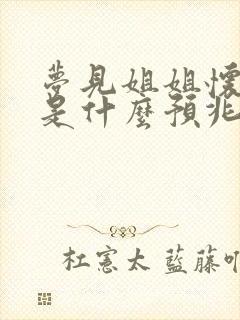 夢見姐姐懷
是什麼預兆
杜憲太 藍藤